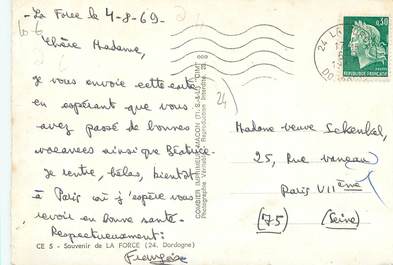 - La Force le 4-8-69 -
Chère Madame,
Je vous envoie cette carte
en espérant que vous
avez passé de bonnes
vacances ainsi que Béatrice.
Je rentre, hélas, bientôt
à Paris où j'espère vous
revoir en bonne santé.
Respectueusement:
Françoise
CE 5 - Souvenir de LA FORCE (24. Dordogne)
COMBIER IMPRIMEUR MACON (71-S.-&-L.) "CIM"
Photographie Véritable - Reproduction Interdite
24
24 LA
0,30
REPUBLIQUE FRANÇAISE
Madame veuve Schenkel,
25, Rue vaneau
Paris VIIème
(75) (Seine)